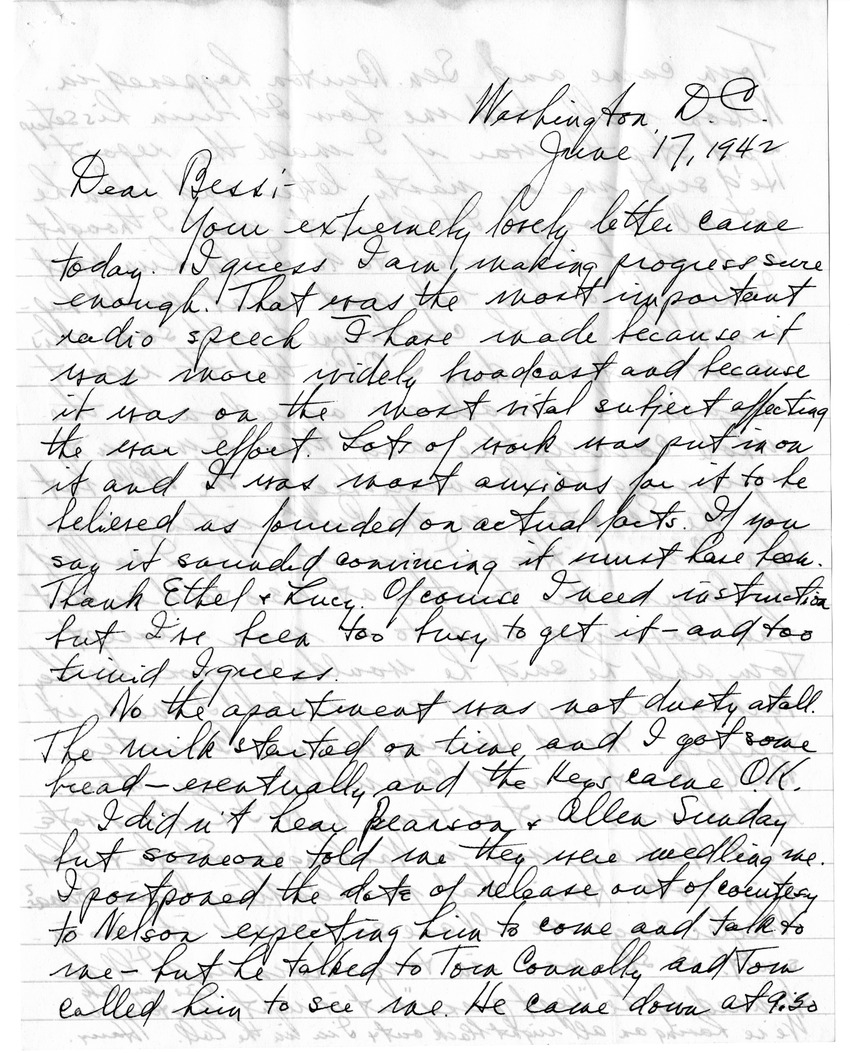 Washington, D.C.
June 17, 1942
Dear Bess:-
Your extremely lovely letter came
today. I guess I am making progress sure
enough. That was the most important
radio speech I have made because it
was more widely broadcast and because
it was on the most vital subject affecting
the war effort. Lots of work was put in on
it and I was most anxious for it to be
believed as founded on actual facts. If you
say it sounded convincing it must have been.
Thank Ethel & Lucy. Of course I need instruction
but I've been too busy to get it - and too
timid I guess.
No the apartment was not dusty atall.
The milk started on time and I got some
bread - eventually, and the keys came O.K.
I didn't hear Pearson & Allen Sunday
but someone told me they were medling me.
I postponed the date of release out of courtesy
to Nelson expecting him to come and talk to
me - but he talked to Tom Connally and Tom
called him to see me. He came down at 9:30